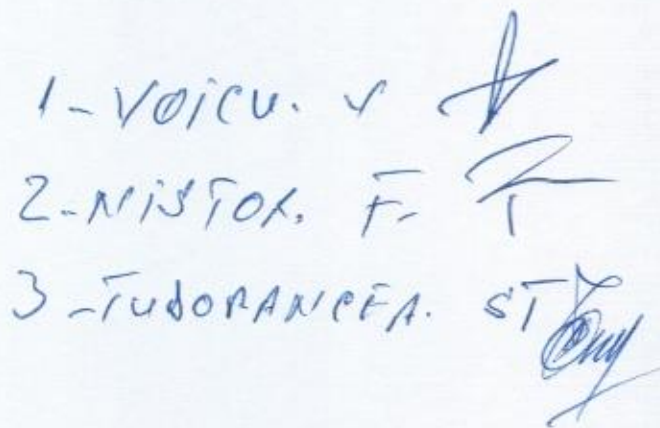 1-VOiCU. V
2-NiSTOR. F.
3-TUDORANCEA. ST